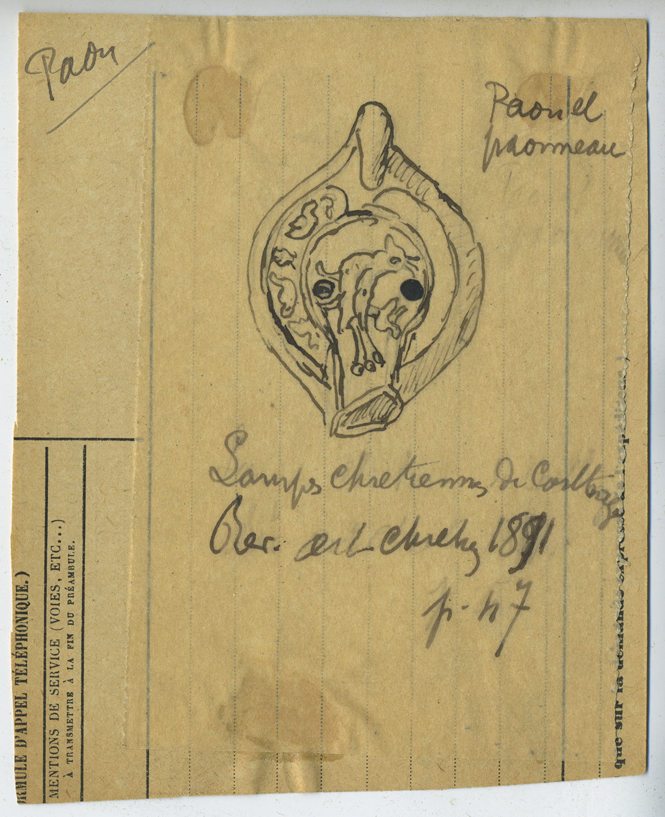 Paon
Paon et
paonneau
Lampes chretiennes de Carthage
Rev. art chretien 1891
p. 47
RMULE D'APPEL TÉLÉPHONIQUE.)
MENTIONS DE SERVICE (VOIES, ETC...)
À TRANSMETTRE À LA FIN DU PRÉAMBULE.
que sur la demande expresse de l'expéditeur.)